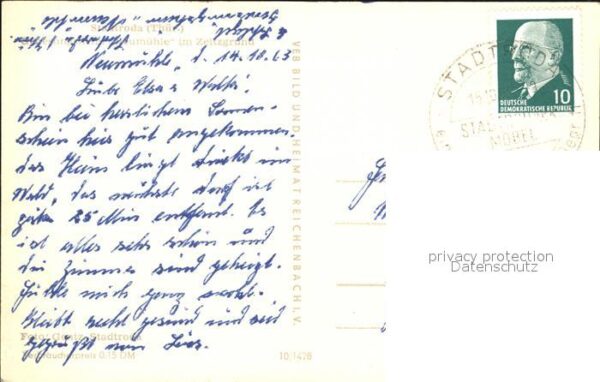 Stadtroda (Thür.)
"Neumühle" im Zeitzgrund
Neumühle, d. 14.10.63
Liebe Elsa u. Walter!
Bin bei herrlichem Sonnen-
schein hier gut angekommen.
Das Heim liegt direkt im
Wald, das nächste Dorf ist
gute 25 Min entfernt. Es
ist alles sehr schön und
die Zimmer sind geheizt.
Fühle mich ganz wohl.
Bleibt recht gesund und seid
gegrüßt von
Foto: Stadtroda
Verbraucherpreis 0,15 DM
10 1428
VEB BILD UND HEIMAT REICHENBACH I. V.
STADTRODA
MÖBEL
10
DEUTSCHE
DEMOKRATISCHE REPUBLIK
privacy protection
Datenschutz